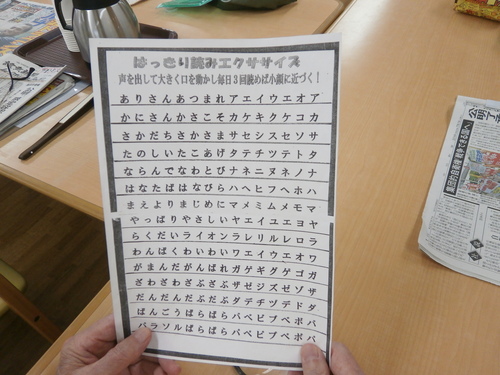 はっきり読みエクササイズ
声を出して大きく口を動かし毎日3回読めば小顔に近づく！
ありさんあつまれアエイウエオア
かにさんかさこそカケキクケコカ
さかだちさかさまサセシスセソサ
たのしいたこあげタテチツテトタ
ならんでなわとびナネニヌネノナ
はなたばはなびらハヘヒフヘホハ
まえよりまじめにマメミムメモマ
やっぱりやさしいヤエイユエヨヤ
らくだいライオンラレリルレロラ
わんぱくわいわいワエイウエオワ
がまんだがんばれガゲギグゲゴガ
ざわざわざぶざぶザゼジズゼゾザ
だんだんだぶだぶダデヂヅデドダ
ばんごうばらばらバベビブベボバ
パラソルぱらぱらパペピプペポパ